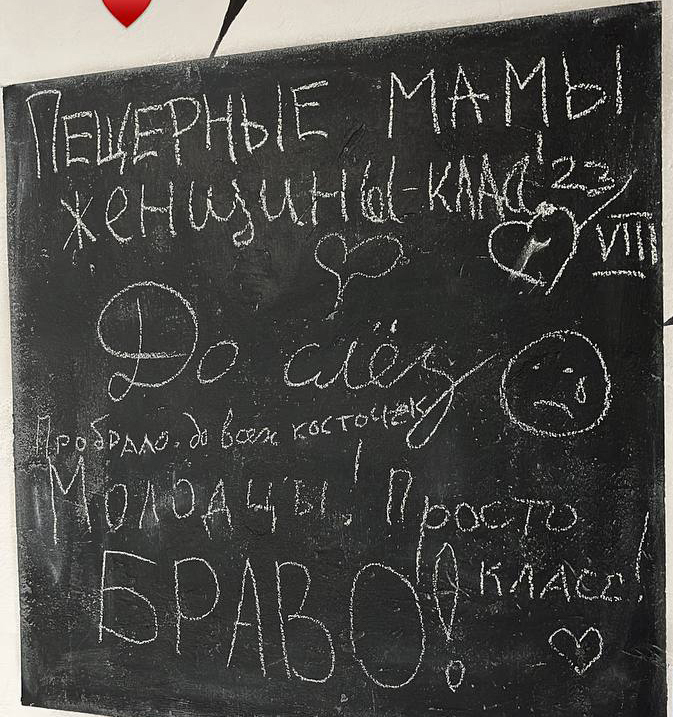 ПЕЩЕРНЫЕ МАМЫ
женщины-класс! 23
VIII
До слёз
Пробрало до всех косточек
Молодцы! Просто
класс!
БРАВО!